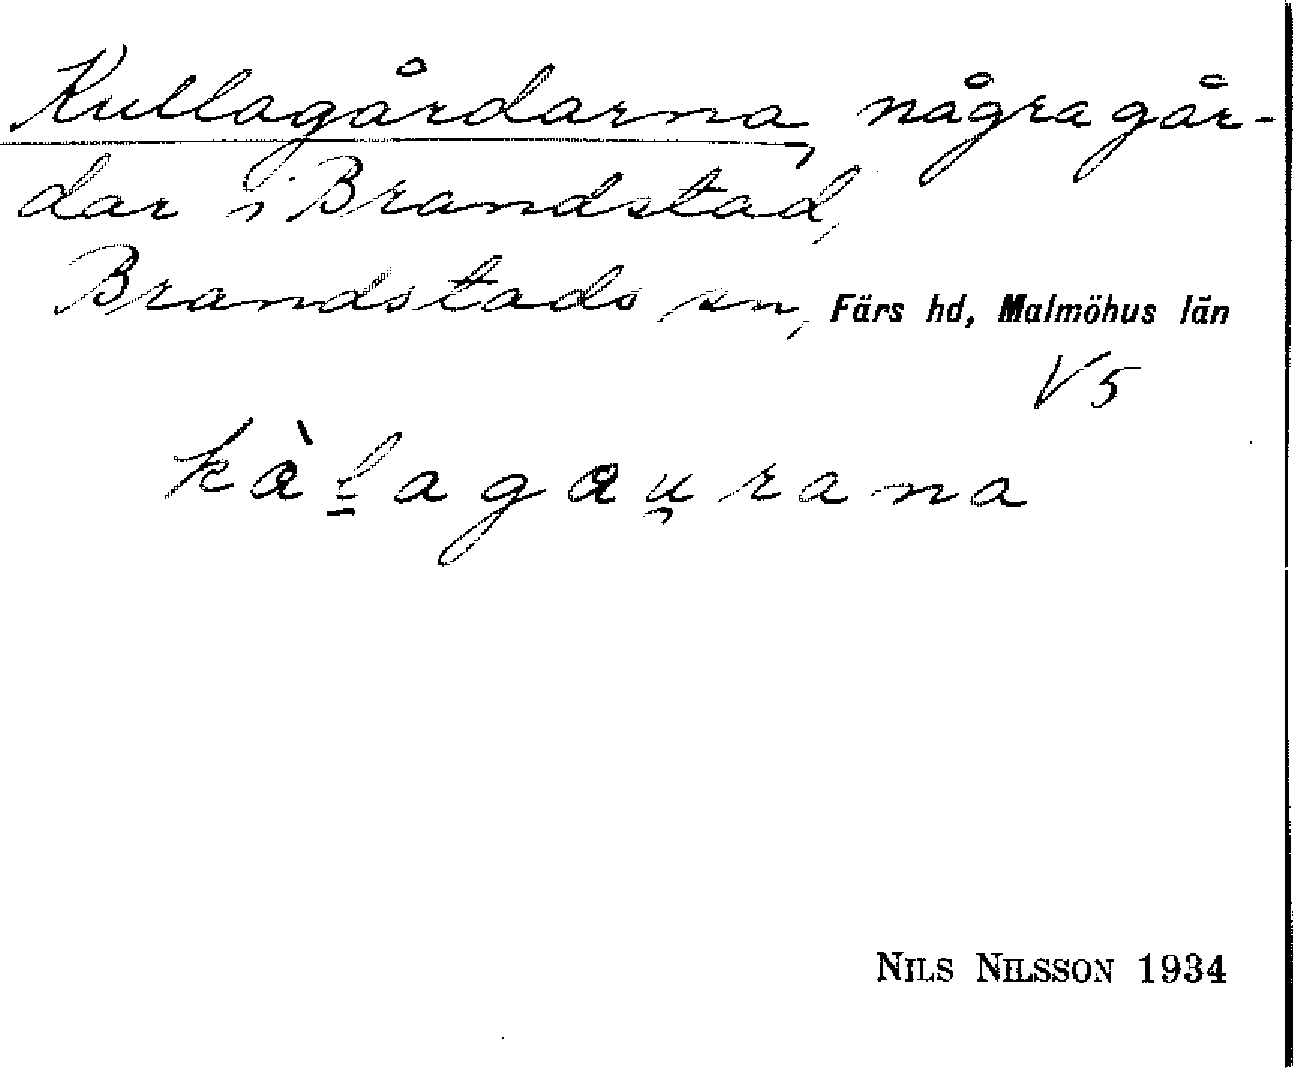 Kullagårdarna, några går-
dar i Brandstad,
Brandstads sn, Färs hd, Malmöhus län
V5
kàl̠agau̯rana
NILS NILSSON 1934